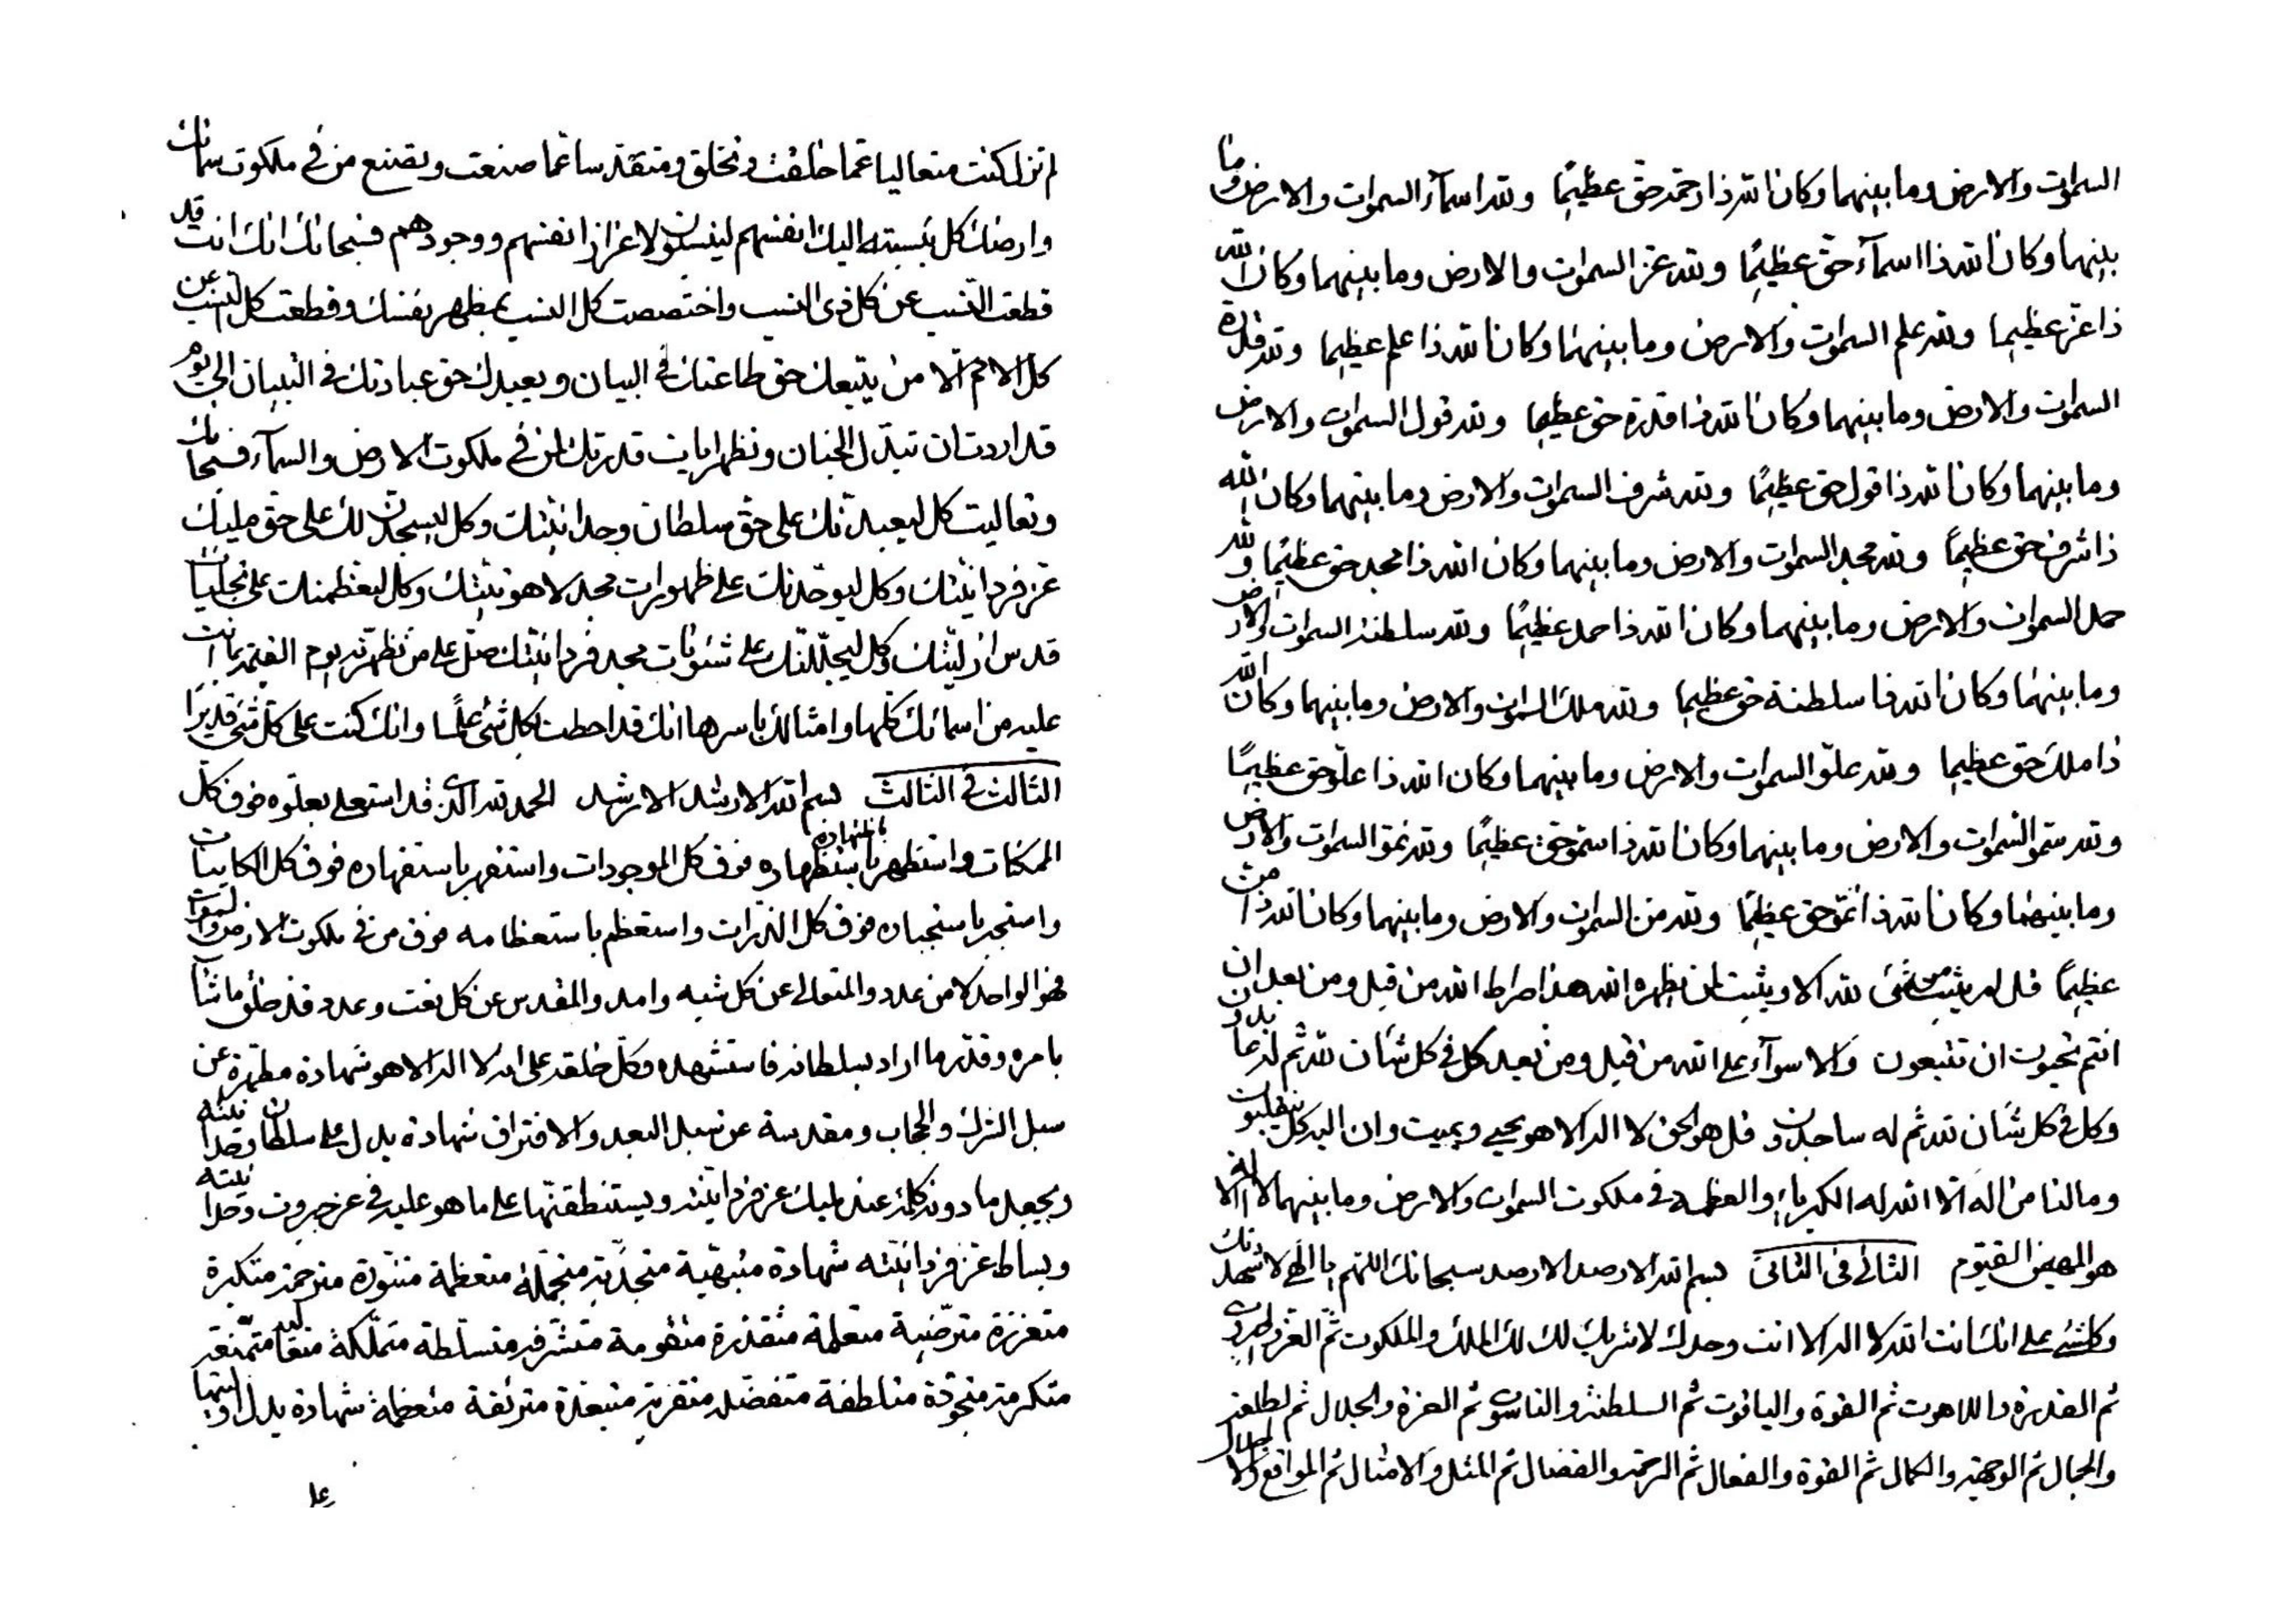 السموات والارض وما بينهما وكان الله ذا رحمة حق عظيما ولله اسماء السموات والارض وما
بينهما وكان الله ذا اسماء حق عظيما ولله عز السموات والارض وما بينهما وكان الله
ذا عز عظيما ولله علم السموات والارض وما بينهما وكان الله ذا علم عظيما ولله قدرة
السموات والارض وما بينهما وكان الله ذا قدرة حق عظيما ولله قول السموات والارض
وما بينهما وكان الله ذا قول حق عظيما ولله شرف السموات والارض وما بينهما وكان الله
ذا شرف حق عظيما ولله مجد السموات والارض وما بينهما وكان الله ذا مجد حق عظيما ولله
حمد السموات والارض وما بينهما وكان الله ذا حمد عظيما ولله سلطنة السموات والارض
وما بينهما وكان الله ذا سلطنة حق عظيما ولله ملك السموات والارض وما بينهما وكان الله
ذا ملك حق عظيما ولله علو السموات والارض وما بينهما وكان الله ذا علو حق عظيما
ولله سمو السموات والارض وما بينهما وكان الله ذا سمو حق عظيما ولله نمو السموات والارض
وما بينهما وكان الله ذا نمو حق عظيما ولله من السموات والارض وما بينهما وكان الله ذا من
عظيما قل لم يثبت من شئ لله الا ويثبت لمن يظهره الله هذا صراط الله من قبل ومن بعد ان
انتم تحبون ان تتبعون والا سواء على الله من قبل ومن بعد كل في كل شأن لله ثم له عابدون
وكل في كل شأن لله ثم له ساجدون قل هو الحق لا اله الا هو يحيي ويميت وان اليه كل ينقلبون
وما لنا من اله الا الله له الكبرياء والعظمة في ملكوت السموات والارض وما بينهما لا اله الا
هو المهيمن القيوم الثاني في الثاني بسم الله الارصد الارصد سبحانك اللهم يا الهي لاشهدنك
وكلشئ على انك انت الله لا اله الا انت وحدك لا شريك لك لك الملك والملكوت ثم العز والجبروت
ثم القدرة واللاهوت ثم القوة والياقوت ثم السلطنة والناسوت ثم العزة والجلال ثم الطلعة
والجمال ثم الوجهة والكمال ثم القوة والفعال ثم الرحمة والفضال ثم المثل والامثال ثم المواقع والاجلال
لم تزل كنت متعاليا عما خلقت وتخلق ومتقدسا عما صنعت وتصنع من في ملكوت سمائك
وارضك كل بنسبته اليك انفسهم لينسبون لاعزاز انفسهم ووجودهم فسبحانك انك انت قد
قطعت النسب عن كل ذي النسب واختصصت كل النسب بمظهر نفسك وقطعت كل النسب عن
كل الامم الا من يتبعك حق طاعتك في البيان ويعبدك حق عبادتك في التبيان الى يوم
قد اردت ان تبدل الجنان وتظهر ايات قدرتك لمن في ملكوت الارض والسماء فسبحانك
وتعاليت كل ليعبدنك على حق سلطان وحدانيتك وكل ليسجدن لك على حق مليك
عز فردانيتك وكل ليوحدنك على ظهورات مجد لاهوتيتك وكل ليعظمنك على تجليات
قدس ازليتك وكل ليجللنك على شئونات مجد فردانيتك صل على من تظهرنه يوم القيمة بما انت
عليه من اسمائك كلها وامثالك باسرها انك قد احطت بكل شئ علما وانك كنت على كل شئ قديرا
الثالث في الثالث بسم الله الارشد الارشد الحمد لله الذي قد استعلى بعلوه فوق كل
الممكنات واستظهر باستظهاره فوق كل الموجودات واستقهر باستقهاره فوق كل الكاينات
واستجبر باستجباره فوق كل الذرات واستعظم باستعظامه فوق من في ملكوت الارض والسموات
فهو الواحد لا من عدد والمتعالى عن كل شبه وامد والمقدس عن كل نعت وعدد قد خلق ما شاء
بامره وقدر ما اراد بسلطانه فاستشهده وكل خلقه على انه لا اله الا هو شهادة مطهرة عن
سبل الشرك والحجاب ومقدسة عن سبل البعد والاقتراف شهادة يدل على سلطان وحدانيته
ويجعل ما دونه كله عند مليك عز فردانيته ويستنطقنها على ما هو عليه في عز جبروت وحدانيته
وبساط عز فردانيته شهادة متبهية متجللة متجملة متعظمة متنورة مترحمة متكبرة
متعززة مترضية متعلمة متقدرة متقومة متشرفة متسلطة متملكة متعالية متمنعة
متكرمة متجودة متلطفة متفضلة شهادة يدل
على